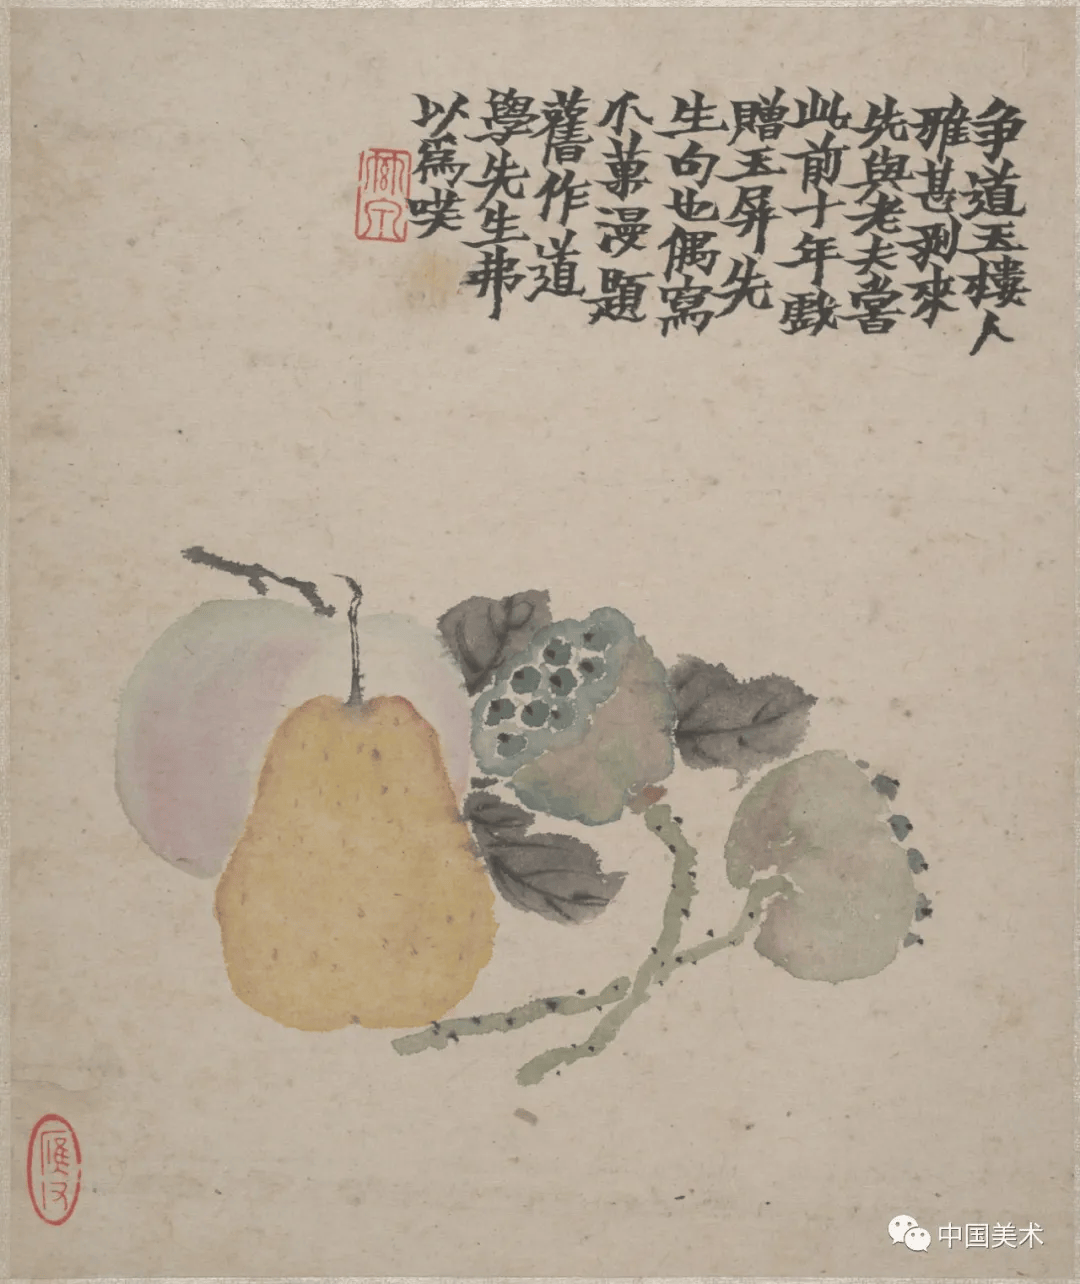 争道玉樓人
雅甚剥來
先與老夫嘗
此前十年戲
贈玉屏先
生句也偶寫
瓜菓漫題
舊作道
學先生弗
以爲咲
中国美术